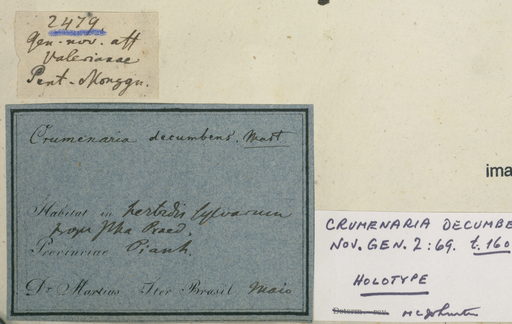 2479.
Gen. nov. aff
Valerianae
Pent-Monogyn.
Crumenaria decumbens. Mart
Habitat in herbidis sylvarum
prope Praed.
Provinciae Piauh.
Dr. Martius Iter Brasil Maio
ima
CRUMENARIA DECUMBE
NOV. GEN. 2:69. t. 160
HOLOTYPE
M C Johnston